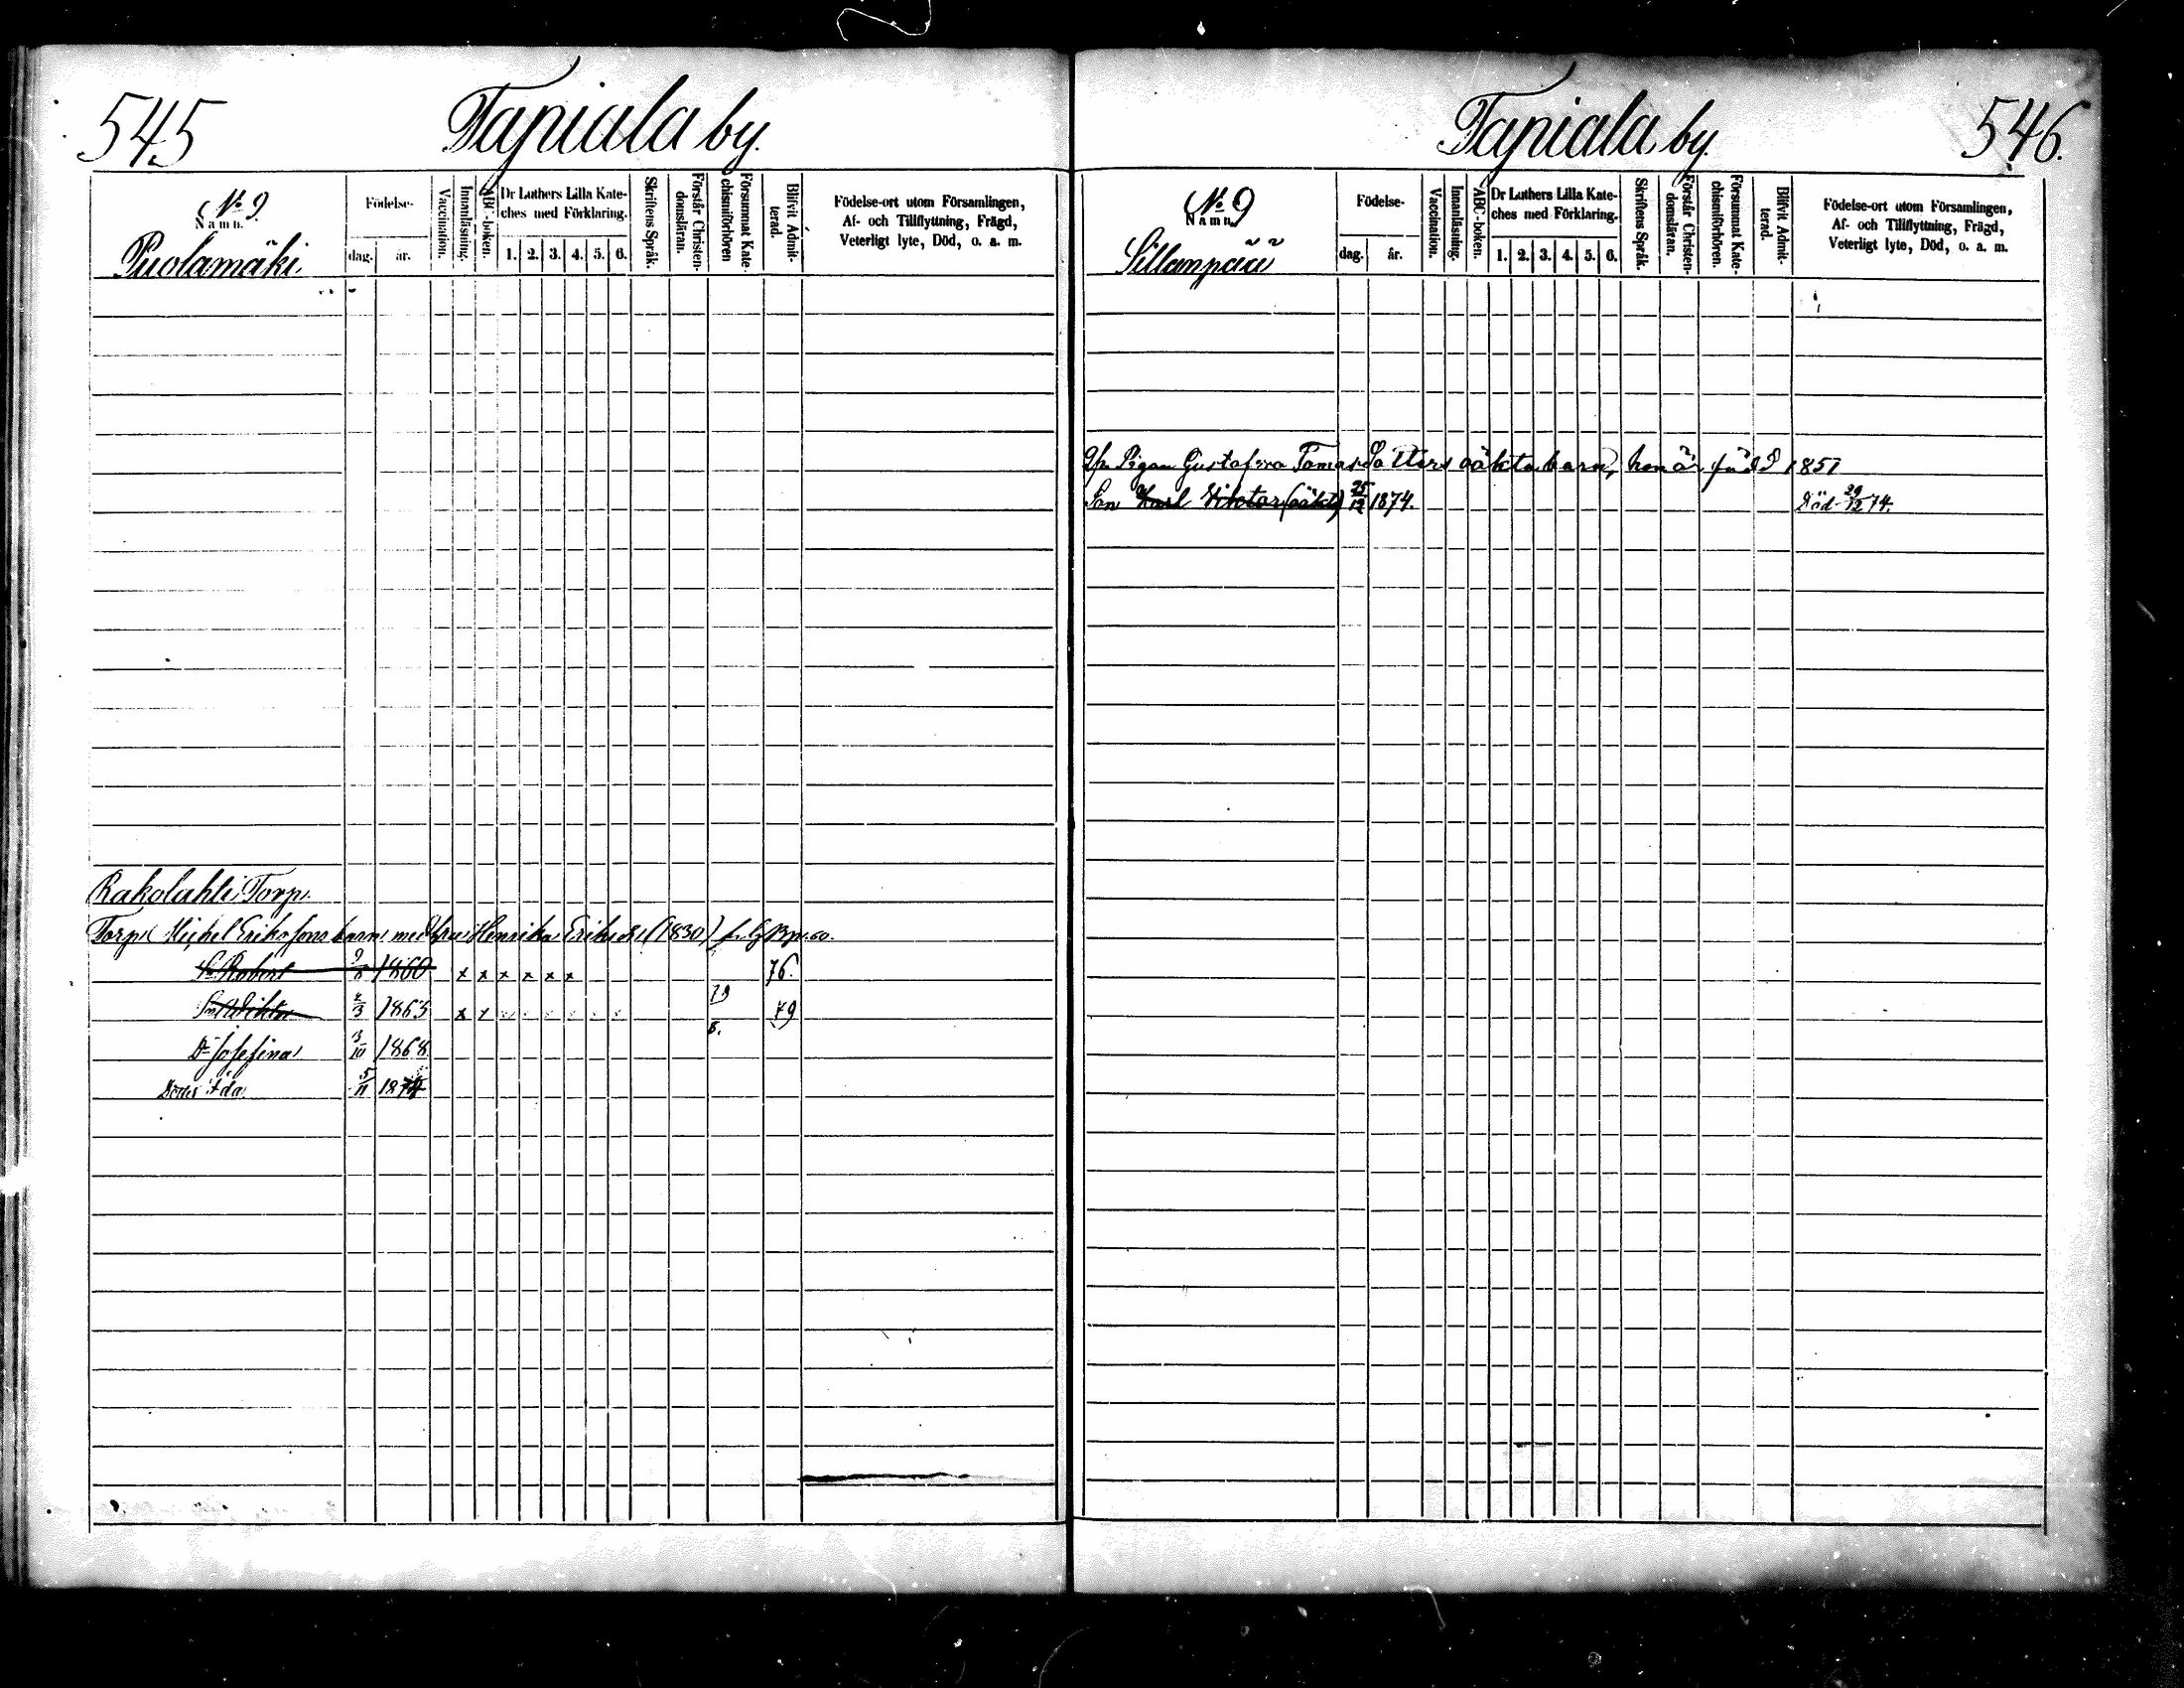 545 Tapiala by.
No 9.
Namn.
Puolamäki
Födelse-
dag. år.
Vaccination.
Innanläsning.
ABC-boken.
Dr Luthers Lilla Kate-
ches med Förklaring.
1. 2. 3. 4. 5. 6.
Skriftens Språk.
Förstår Christen-
domsläran.
Försummat Kate-
chismiförhören
Blifvit Admit-
terad.
Födelse-ort utom Församlingen,
Af- och Tillflyttning, Frägd,
Veterligt lyte, Död, o. a. m.
Rakolahti Torp.
Torp. Michel Eriksons barn med hru Henrika Eriksdr (1830)
Sn Robert 9/8 1860 x x x x x x 76.
Sn Wiktor /3 1863 x x 79 79
8.
Dr Josefina 13/10 1868
Ida 5/11 1874
Tapiala by. 546.
No 9
Namn
Sillanpää
Födelse-
dag. år.
Vaccination.
Innanläsning.
ABC-boken.
Dr Luthers Lilla Kate-
ches med Förklaring.
1. 2. 3. 4. 5. 6.
Skriftens Språk.
Förstår Christen-
domsläran.
Försummat Kate-
chismiförhören.
Blifvit Admit-
terad.
Födelse-ort utom Församlingen,
Af- och Tillflyttning, Frägd,
Veterligt lyte, Död, o. a. m.
Pigan Gustafva Tomas Dotters oäkta barn, hon är född 1851
Son Karl Viktor (oäkta) 25/12 1874. Död 29/12 74.